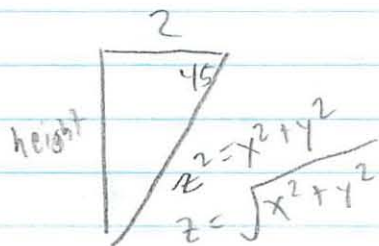 2
45
height
z² = x² + y²
z = √x² + y²